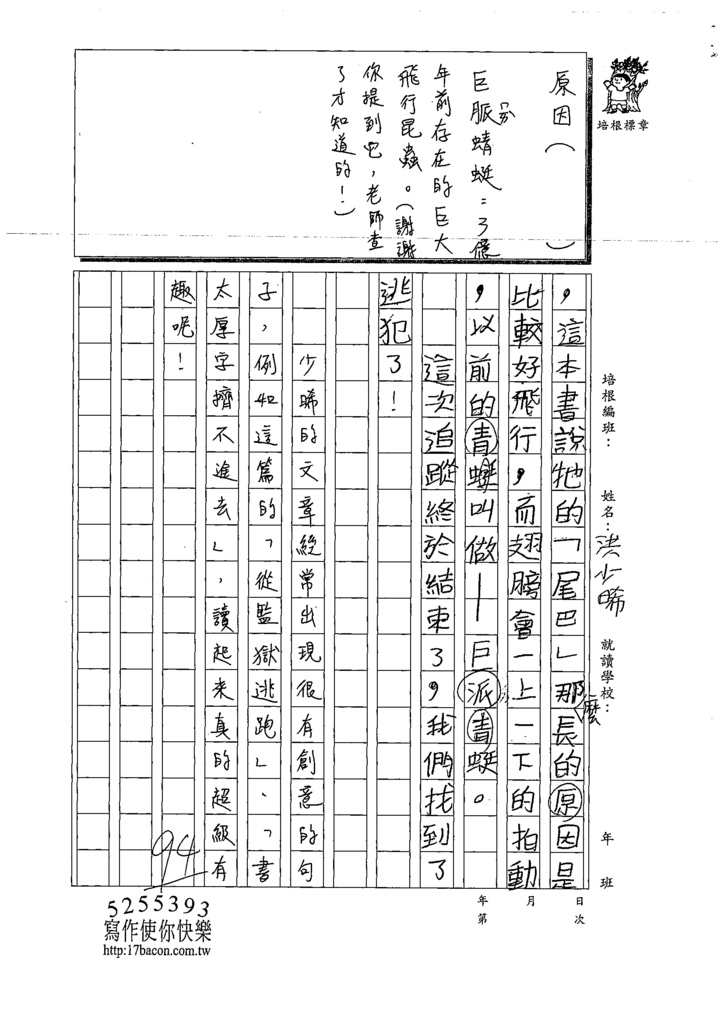 原因（　　　）
巨脈蜻蜓：3億
年前存在的巨大
飛行昆蟲。（謝謝
你提到牠，老師查
了才知道的！）
培根標章
培根編班：
姓名：洪少晞
就讀學校：
年 班
，這本書說牠的「尾巴」那麼長的原因是
比較好飛行，而翅膀會一上一下的拍動
，以前的青蜓叫做—巨派青蜓。
這次追蹤終於結束了，我們找到了
逃犯了！
少晞的文章經常出現很有創意的句
子，例如這篇的「從監獄逃跑」、「書
太厚字擠不進去」，讀起來真的超級有
趣呢！
94
年 月 日
第 次
5255393
寫作使你快樂
http:17bacon.com.tw